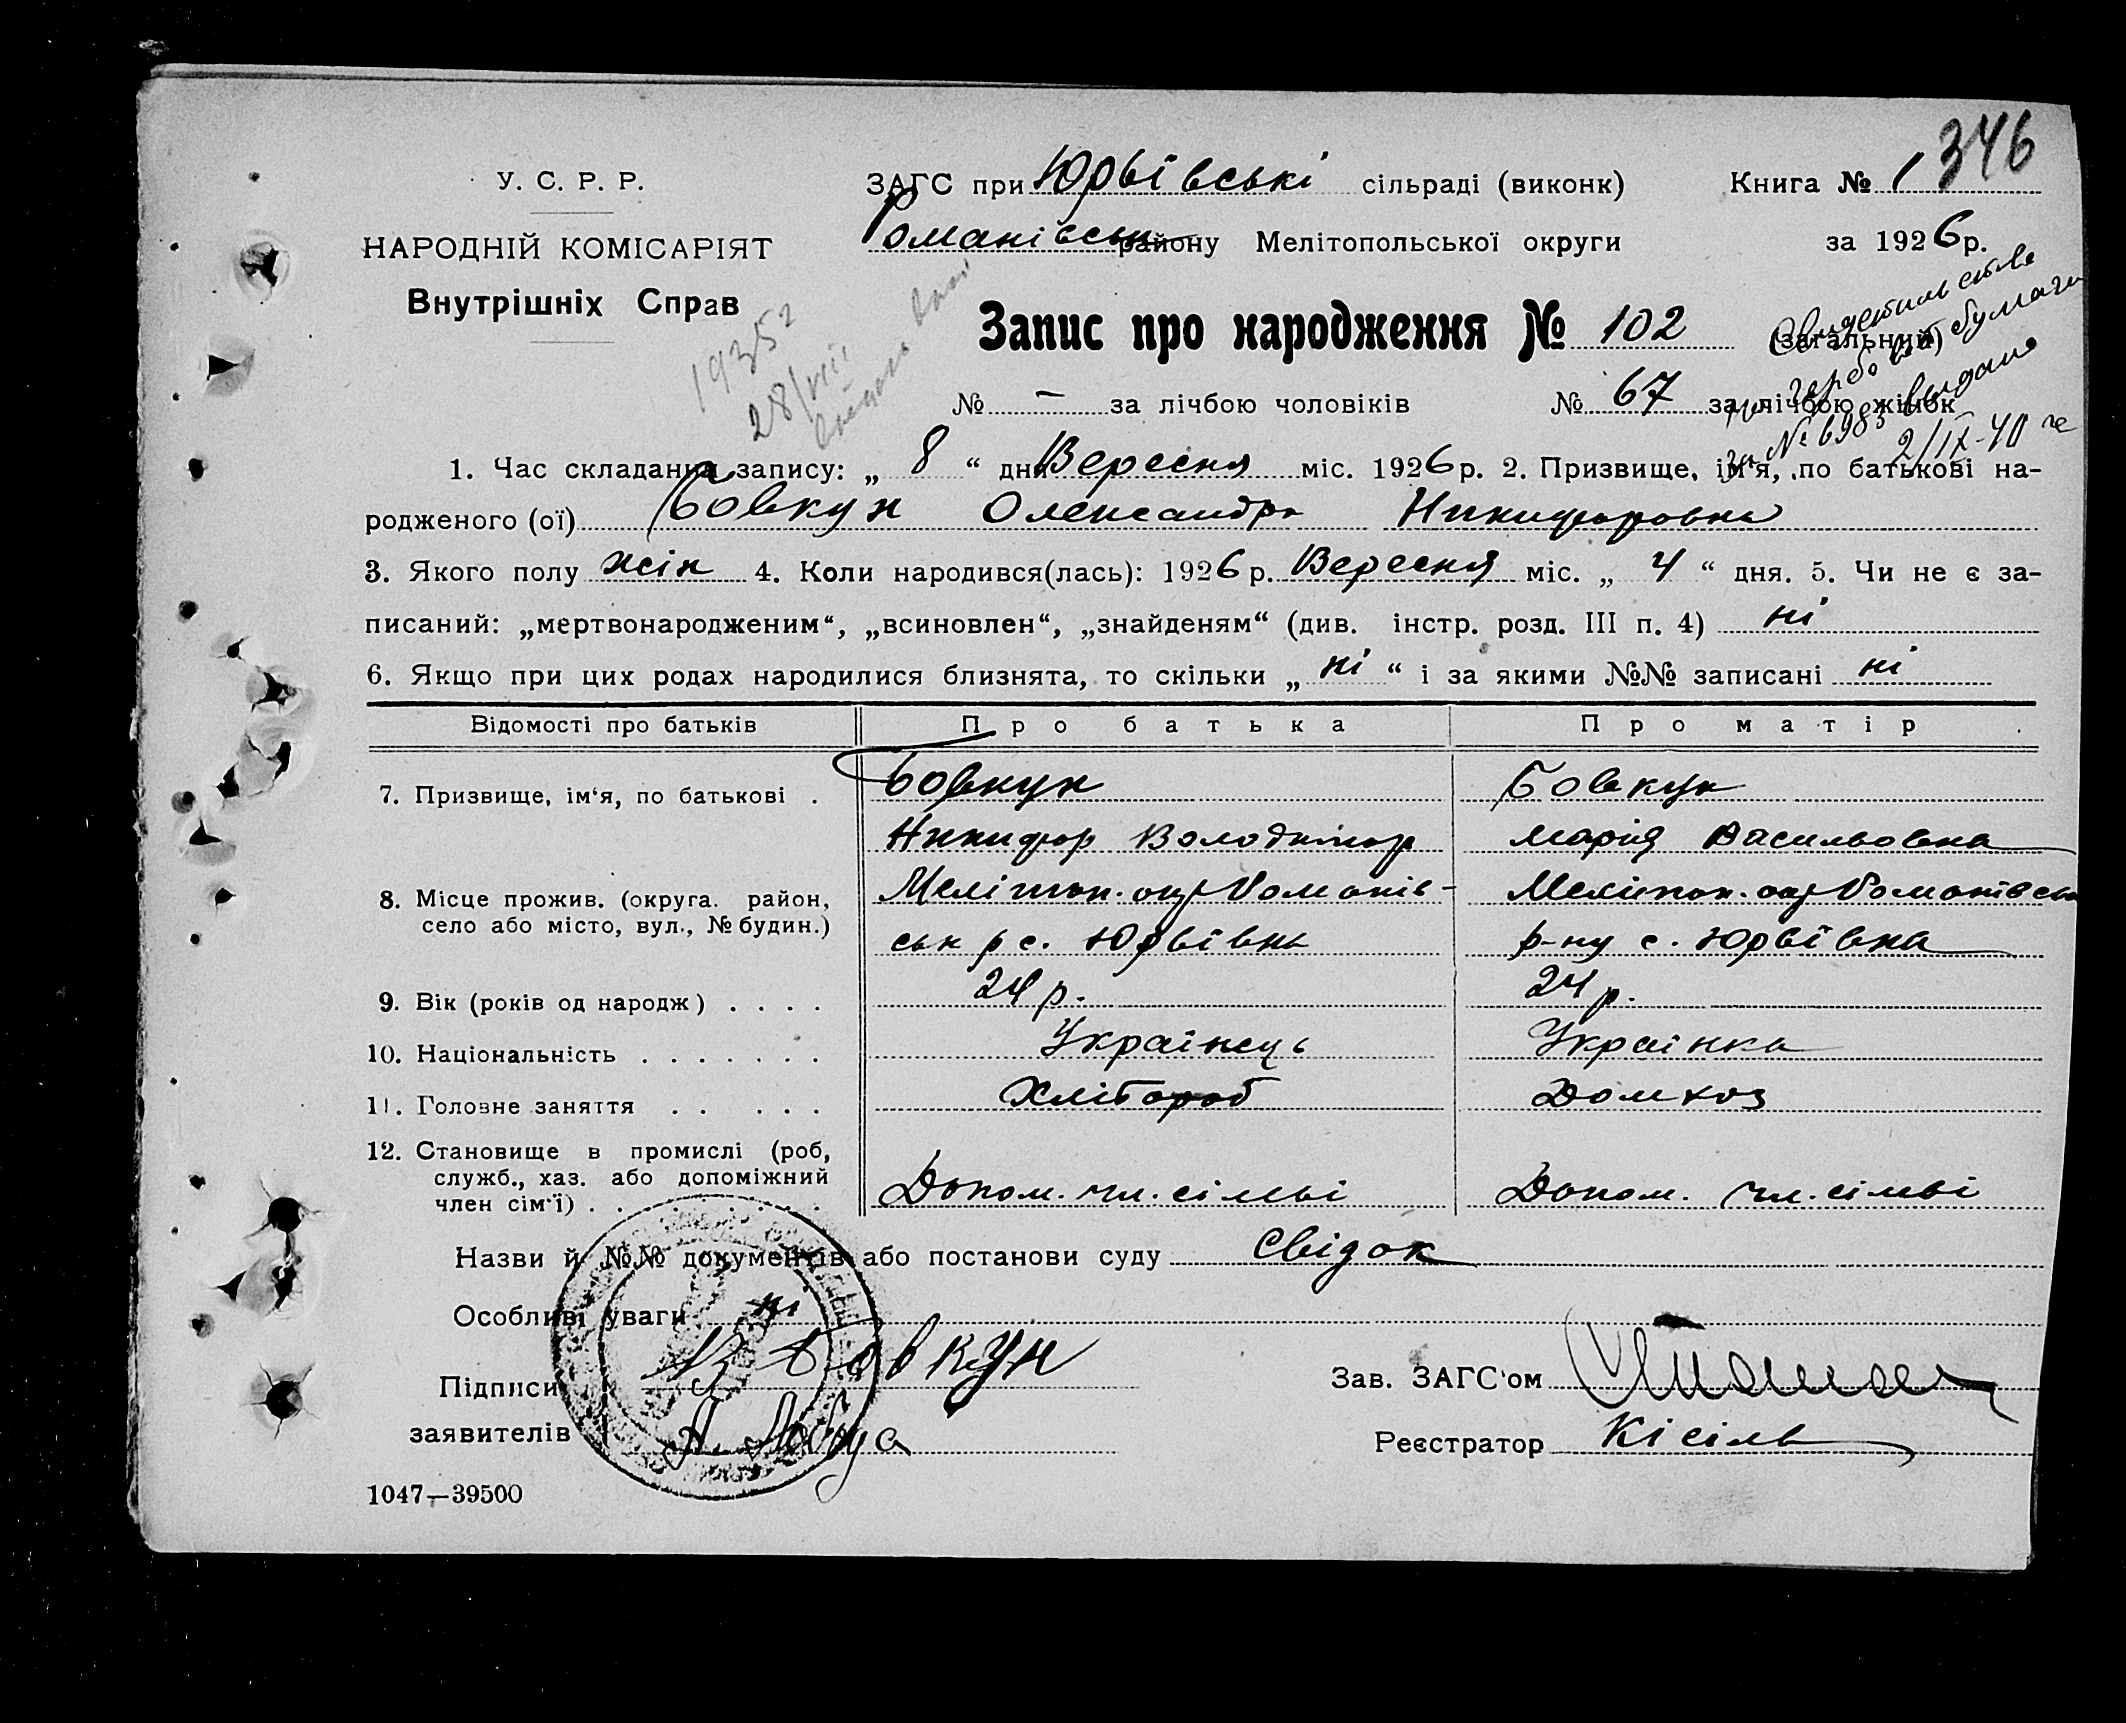 346
У. С. Р. Р.
ЗАГС при Юрьївські сільраді (виконк)
Книга № 1
НАРОДНІЙ КОМІСАРІЯТ
Романівськ району Мелітопольської округи
за 1926 р.
Внутрішніх Справ
Запис про народження № 102 (загальний)
Свидетильство
на гербовой бумаги
за № 6983 выдано
2/IX-40 г
1935 г
28/VIII
№ — за лічбою чоловіків № 67 за лічбою жінок
1. Час складання запису: „ 8 “ дня Вересня міс. 1926 р. 2. Призвище, ім'я, по батькові на-
родженого (ої) Бовкун Олександра Никифоровна
3. Якого полу жін 4. Коли народився(лась): 1926 р. Вересня міс. „ 4 “ дня. 5. Чи не є за-
писаний: „мертвонародженим“, „всиновлен“, „знайденям“ (див. інстр. розд. III п. 4) ні
6. Якщо при цих родах народилися близнята, то скільки „ ні “ і за якими №№ записані ні
Відомості про батьків Про батька Про матір
7. Призвище, ім‘я, по батькові . Бовкун Бовкун
Никифор Володимир Мария Васильовна
8. Місце прожив. (округа. район, Меліт​оп. окр Романів- Мелітоп. окр Романівськ
село або місто, вул., № будин.) ськ р с. Юрьївкь р-ну с. Юрьївка
9. Вік (років од народж) . . . . 24 р. 24 р.
10. Національність . . . . . . . Українець Українка
11. Головне заняття . . . . . Хлібороб Домхоз
12. Становище в промислі (роб,
служб., хаз. або допоміжний
член сім‘ї) . . Допом. чл. сімьі Допом. чл. сімьі
Назви й №№ документів або постанови суду Свідок
Особливі уваги ні
Підписи Бовкун
заявителів
Зав. ЗАГС‘ом
Реєстратор Кісіль
1047—39500